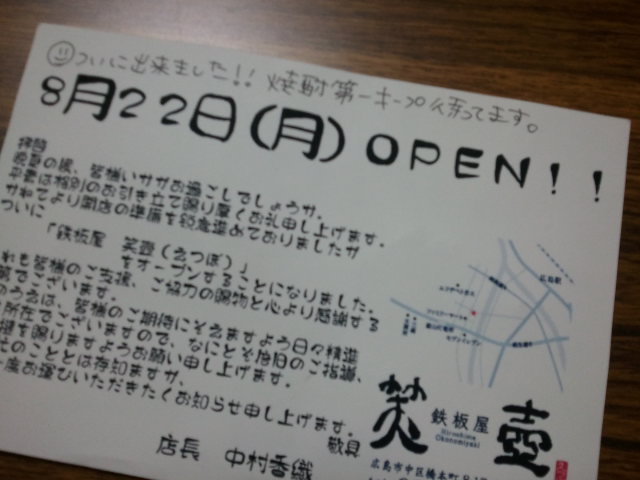 ついに出来ました!! 焼酎第一キープ待ってます。
8月22日(月) OPEN!!
拝啓
晩夏の候、皆様いかがお過ごしでしょうか。
平素は格別のお引き立て賜り厚くお礼申し上げます。
かねてより開店の準備を鋭意進めておりましたが
ついに
「鉄板屋 笑壺(えつぼ)」
をオープンすることになりました。
れも皆様のご支援、ご協力の賜物と心より感謝する
第でございます。
のうえは、皆様のご期待にそえますよう日々精進
所存でございますので、なにとぞ倍旧のご指導、
を賜りますようお願い申し上げます。
のこととは存知ますが、
度お運びいただきたくお知らせ申し上げます。
敬具
店長 中村香織
広島駅
ファミリーマート
セブンイレブン
笑壺
鉄板屋
Hiroshima
Okonomiyaki
広島市中区橋本町